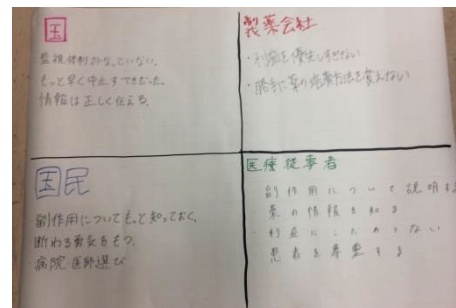 国
監視体制がなっていない。
もっと早く中止すべきだった。
情報は正しく伝える。
製薬会社
・利益を優先しすぎない
・勝手に薬の
方法を変えない
国民
副作用についてもっと知っておく。
断わる勇気をもつ。
病院 医師選び
医療従事者
副作用について説明する
薬の情報を知る
利益に
ない
患者を尊重する